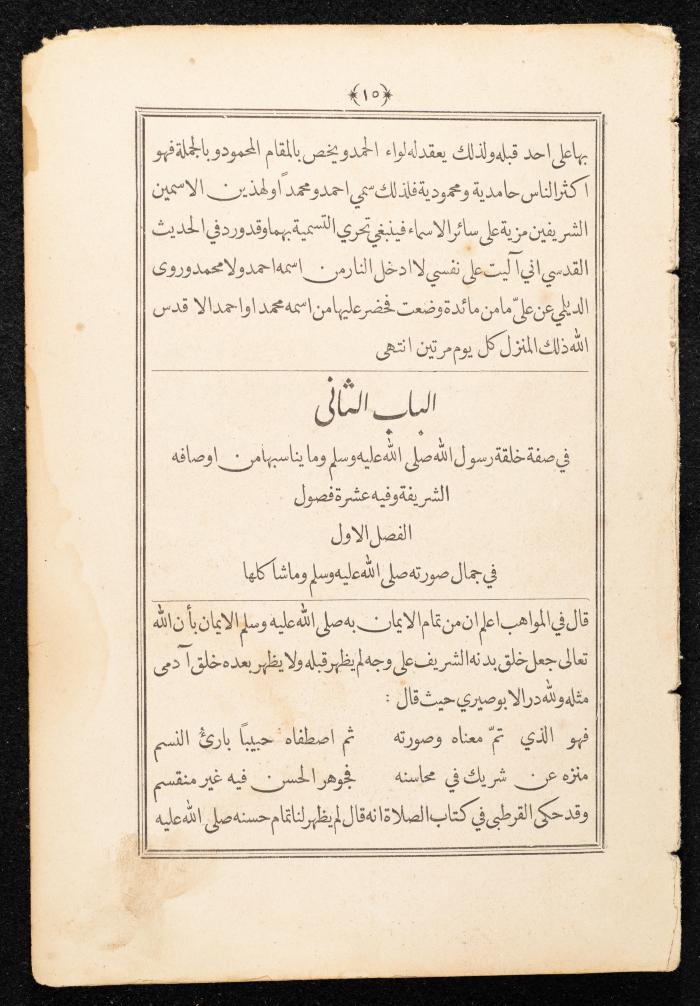 ١٥
بها على احد قبله ولذلك يعقد له لواء الحمد و يخص بالمقام المحمود و بالجملة فهو
اكثر الناس حامدية ومحمودية فلذلك سمي احمد ومحمداً ولهذين الاسمين
الشريفين مزية على سائر الاسماء فينبغي تحري التسمية بهما وقد ورد في الحديث
القدسي اني آليت على نفسي لا ادخل النار من اسمه احمد ولا محمد وروى
الديلي عن عليّ ما من مائدة وضعت فحضر عليها من اسمه محمد او احمد الا قدس
الله ذلك المنزل كل يوم مرتين انتهى
الباب الثاني
في صفة خلقة رسول الله صلى الله عليه وسلم وما يناسبها من اوصافه
الشريفة وفيه عشرة فصول
الفصل الاول
في جمال صورته صلى الله عليه وسلم وما شاكلها
قال في المواهب اعلم ان من تمام الايمان به صلى الله عليه وسلم الايمان بأن الله
تعالى جعل خلق بدنه الشريف على وجه لم يظهر قبله ولا يظهر بعده خلق آدمى
مثله ولله در الابوصيري حيث قال :
فهو الذي تمّ معناه وصورته ثم اصطفاه حبيباً بارئُ النسم
منزه عن شريك في محاسنه فجوهر الحسن فيه غير منقسم
وقد حكى القرطبى في كتاب الصلاة انه قال لم يظهر لنا تمام حسنه صلى الله عليه